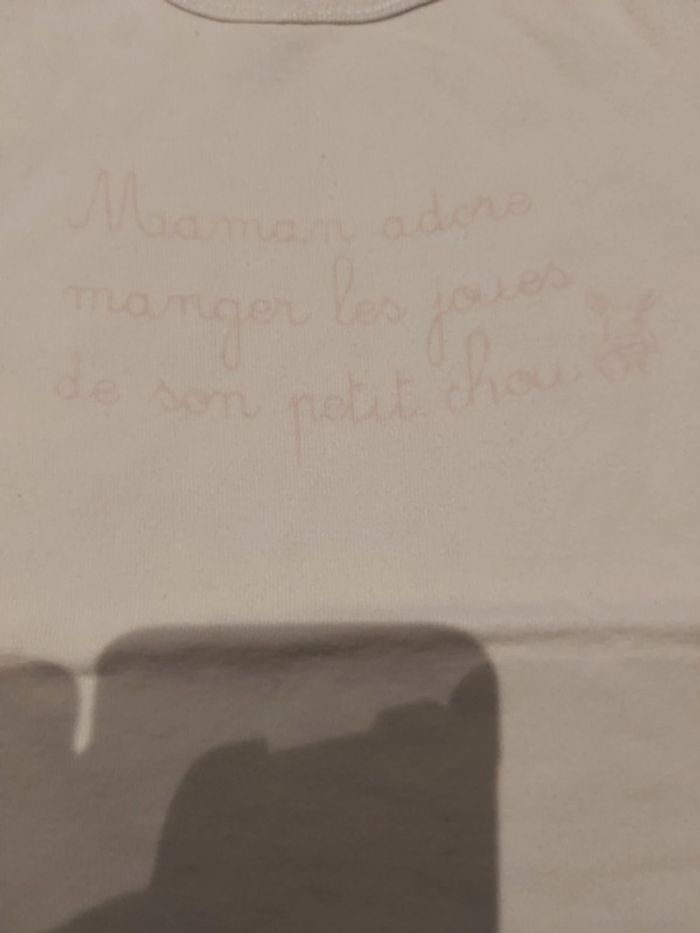 Maman adore
manger les joues
de son petit chou